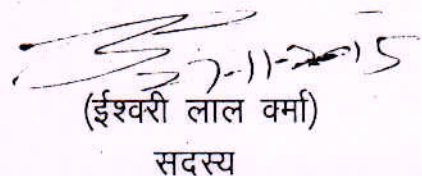 7-11-2015
(ईश्वरी लाल वर्मा)
सदस्य